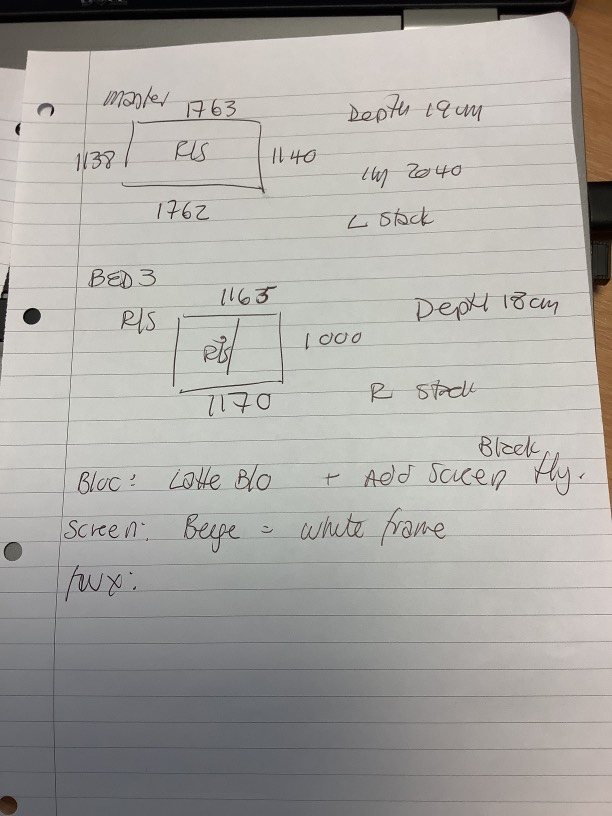 master
1763
Depth 19cm
1138 R/S 1140
2040
1762
L Stack
BED 3
1165
R/S
Depth 18cm
R/S
1000
1170
R Stack
Black
Bloc: Latte Blo + Add Screen fly.
Screen: Beige = white frame